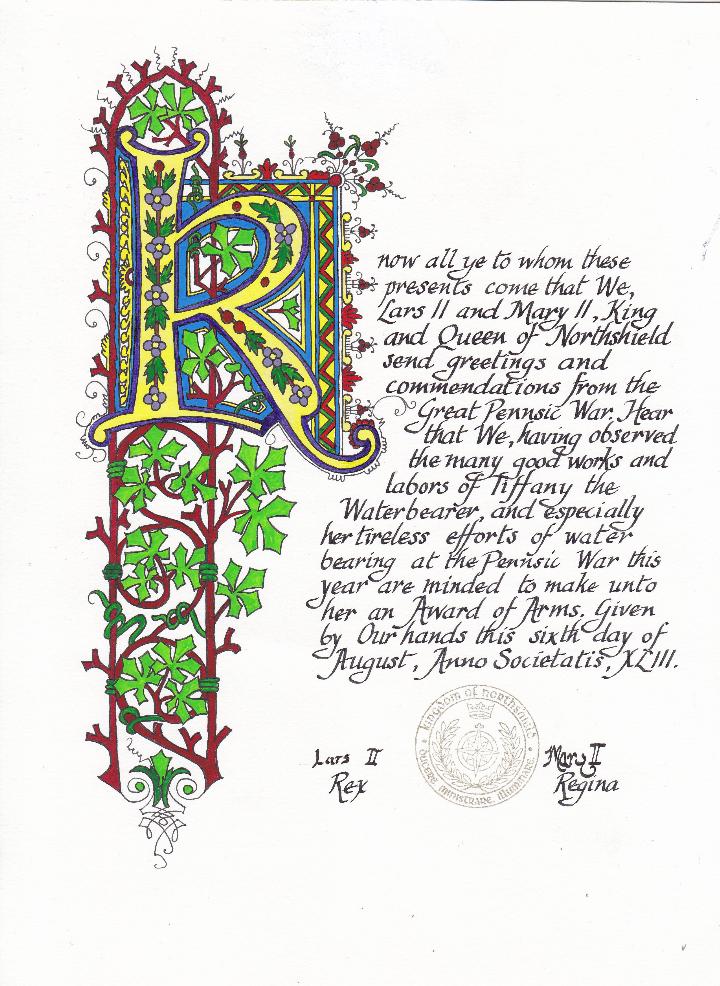 K
now all ye to whom these
presents come that We,
Lars II and Mary II, King
and Queen of Northshield
send greetings and
commendations from the
Great Pennsic War. Hear
that We, having observed
the many good works and
labors of Tiffany the
Waterbearer, and especially
her tireless efforts of water
bearing at the Pennsic War this
year are minded to make unto
her an Award of Arms. Given
by Our hands this sixth day of
August, Anno Societatis, XLIII.
Kingdom of Northshield
Ministrare, Illuminare
Lars II
Rex
Mary II
Regina